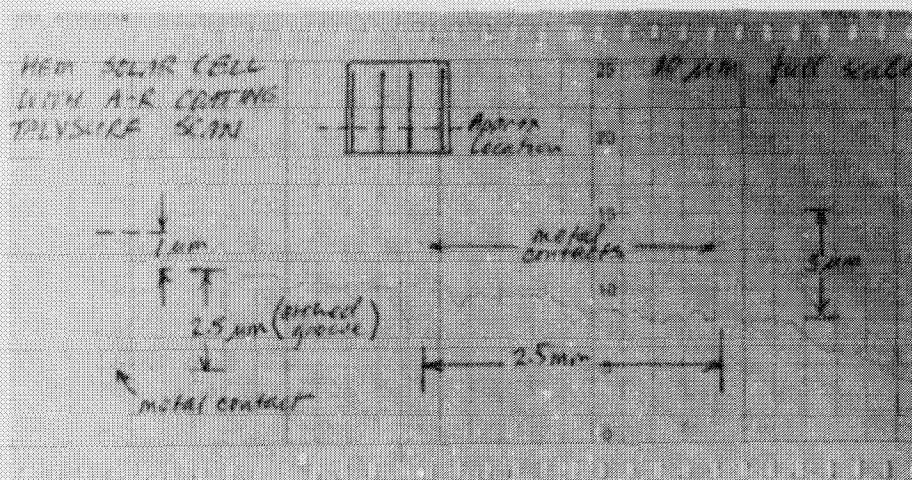 HEM SOLAR CELL
WITH A-R COATING
TALYSURF SCAN
Approx
Location
25
10 μm full scale
20
15
1 μm
metal
contacts
5 μm
10
2.5 μm (etched
groove)
2.5mm
metal contact
0